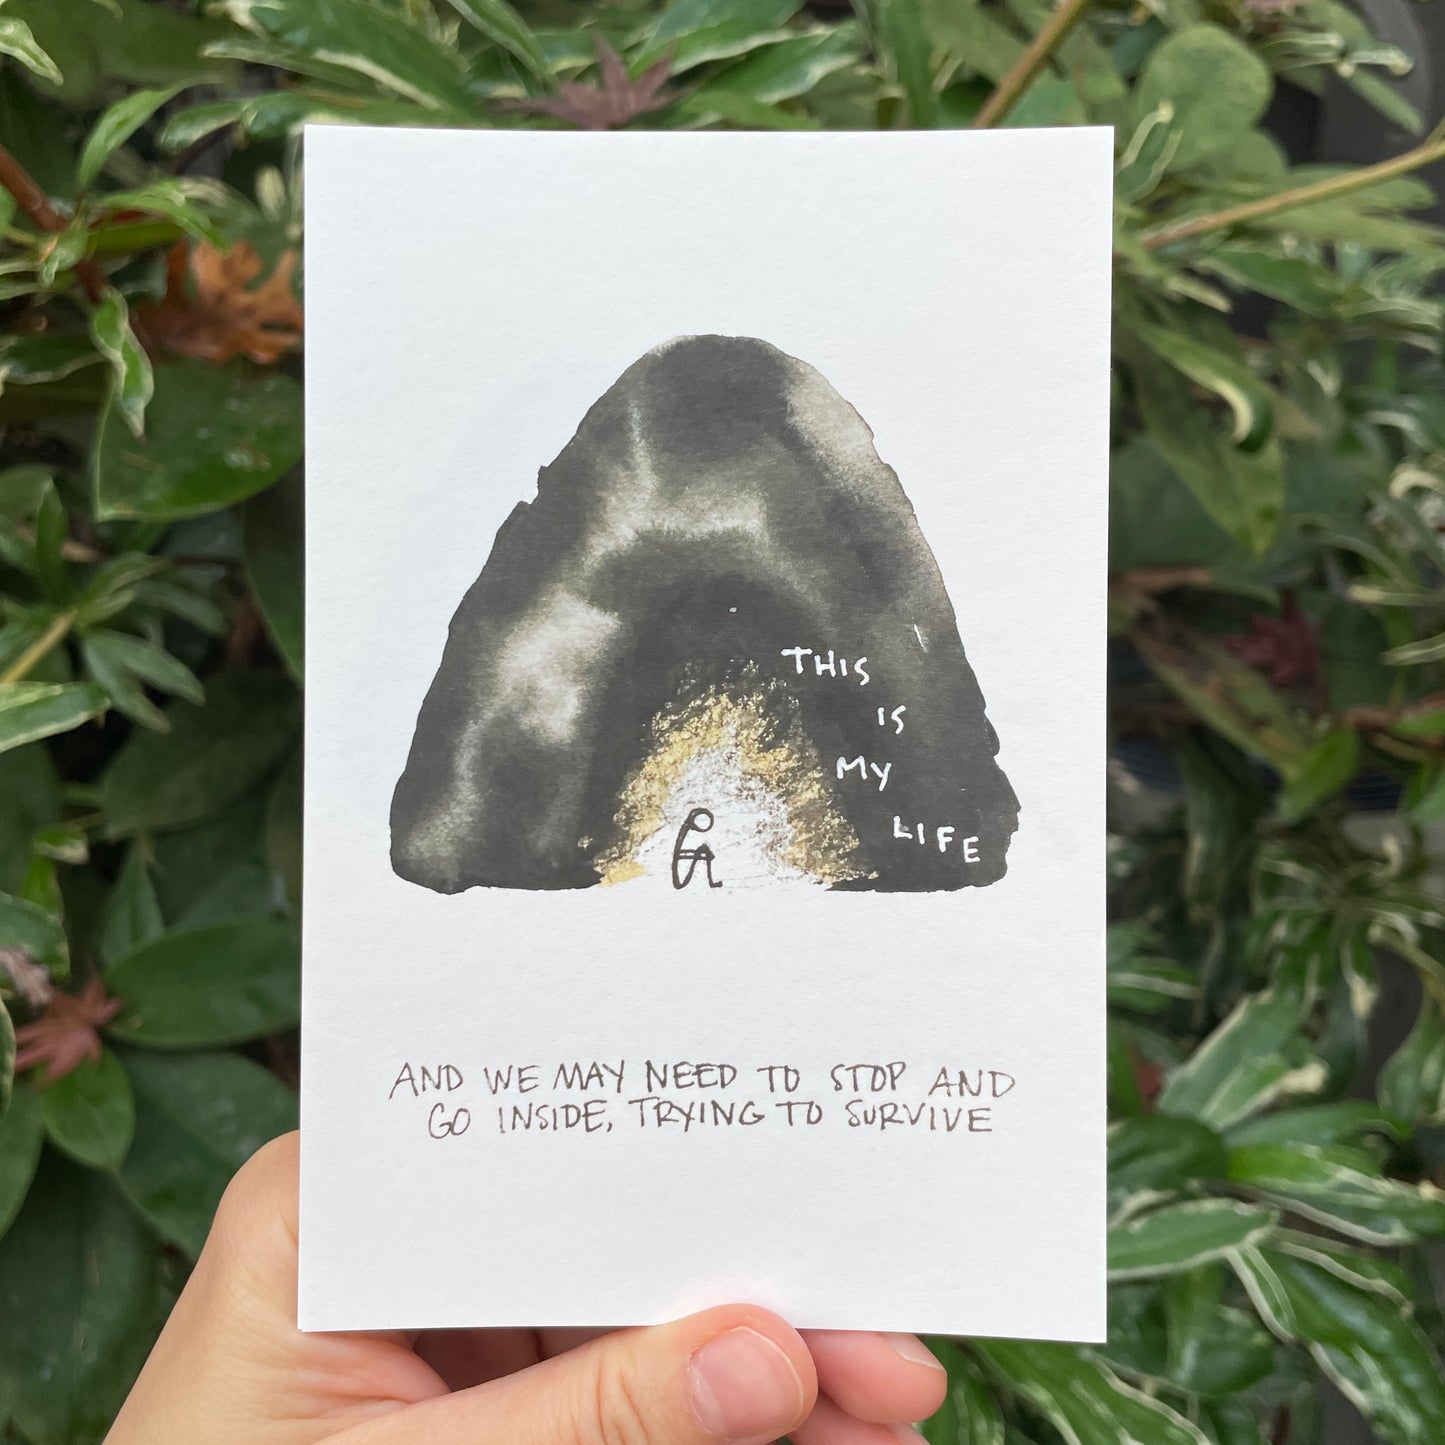 THIS
IS
MY
LIFE
AND WE MAY NEED TO STOP AND
GO INSIDE, TRYING TO SURVIVE